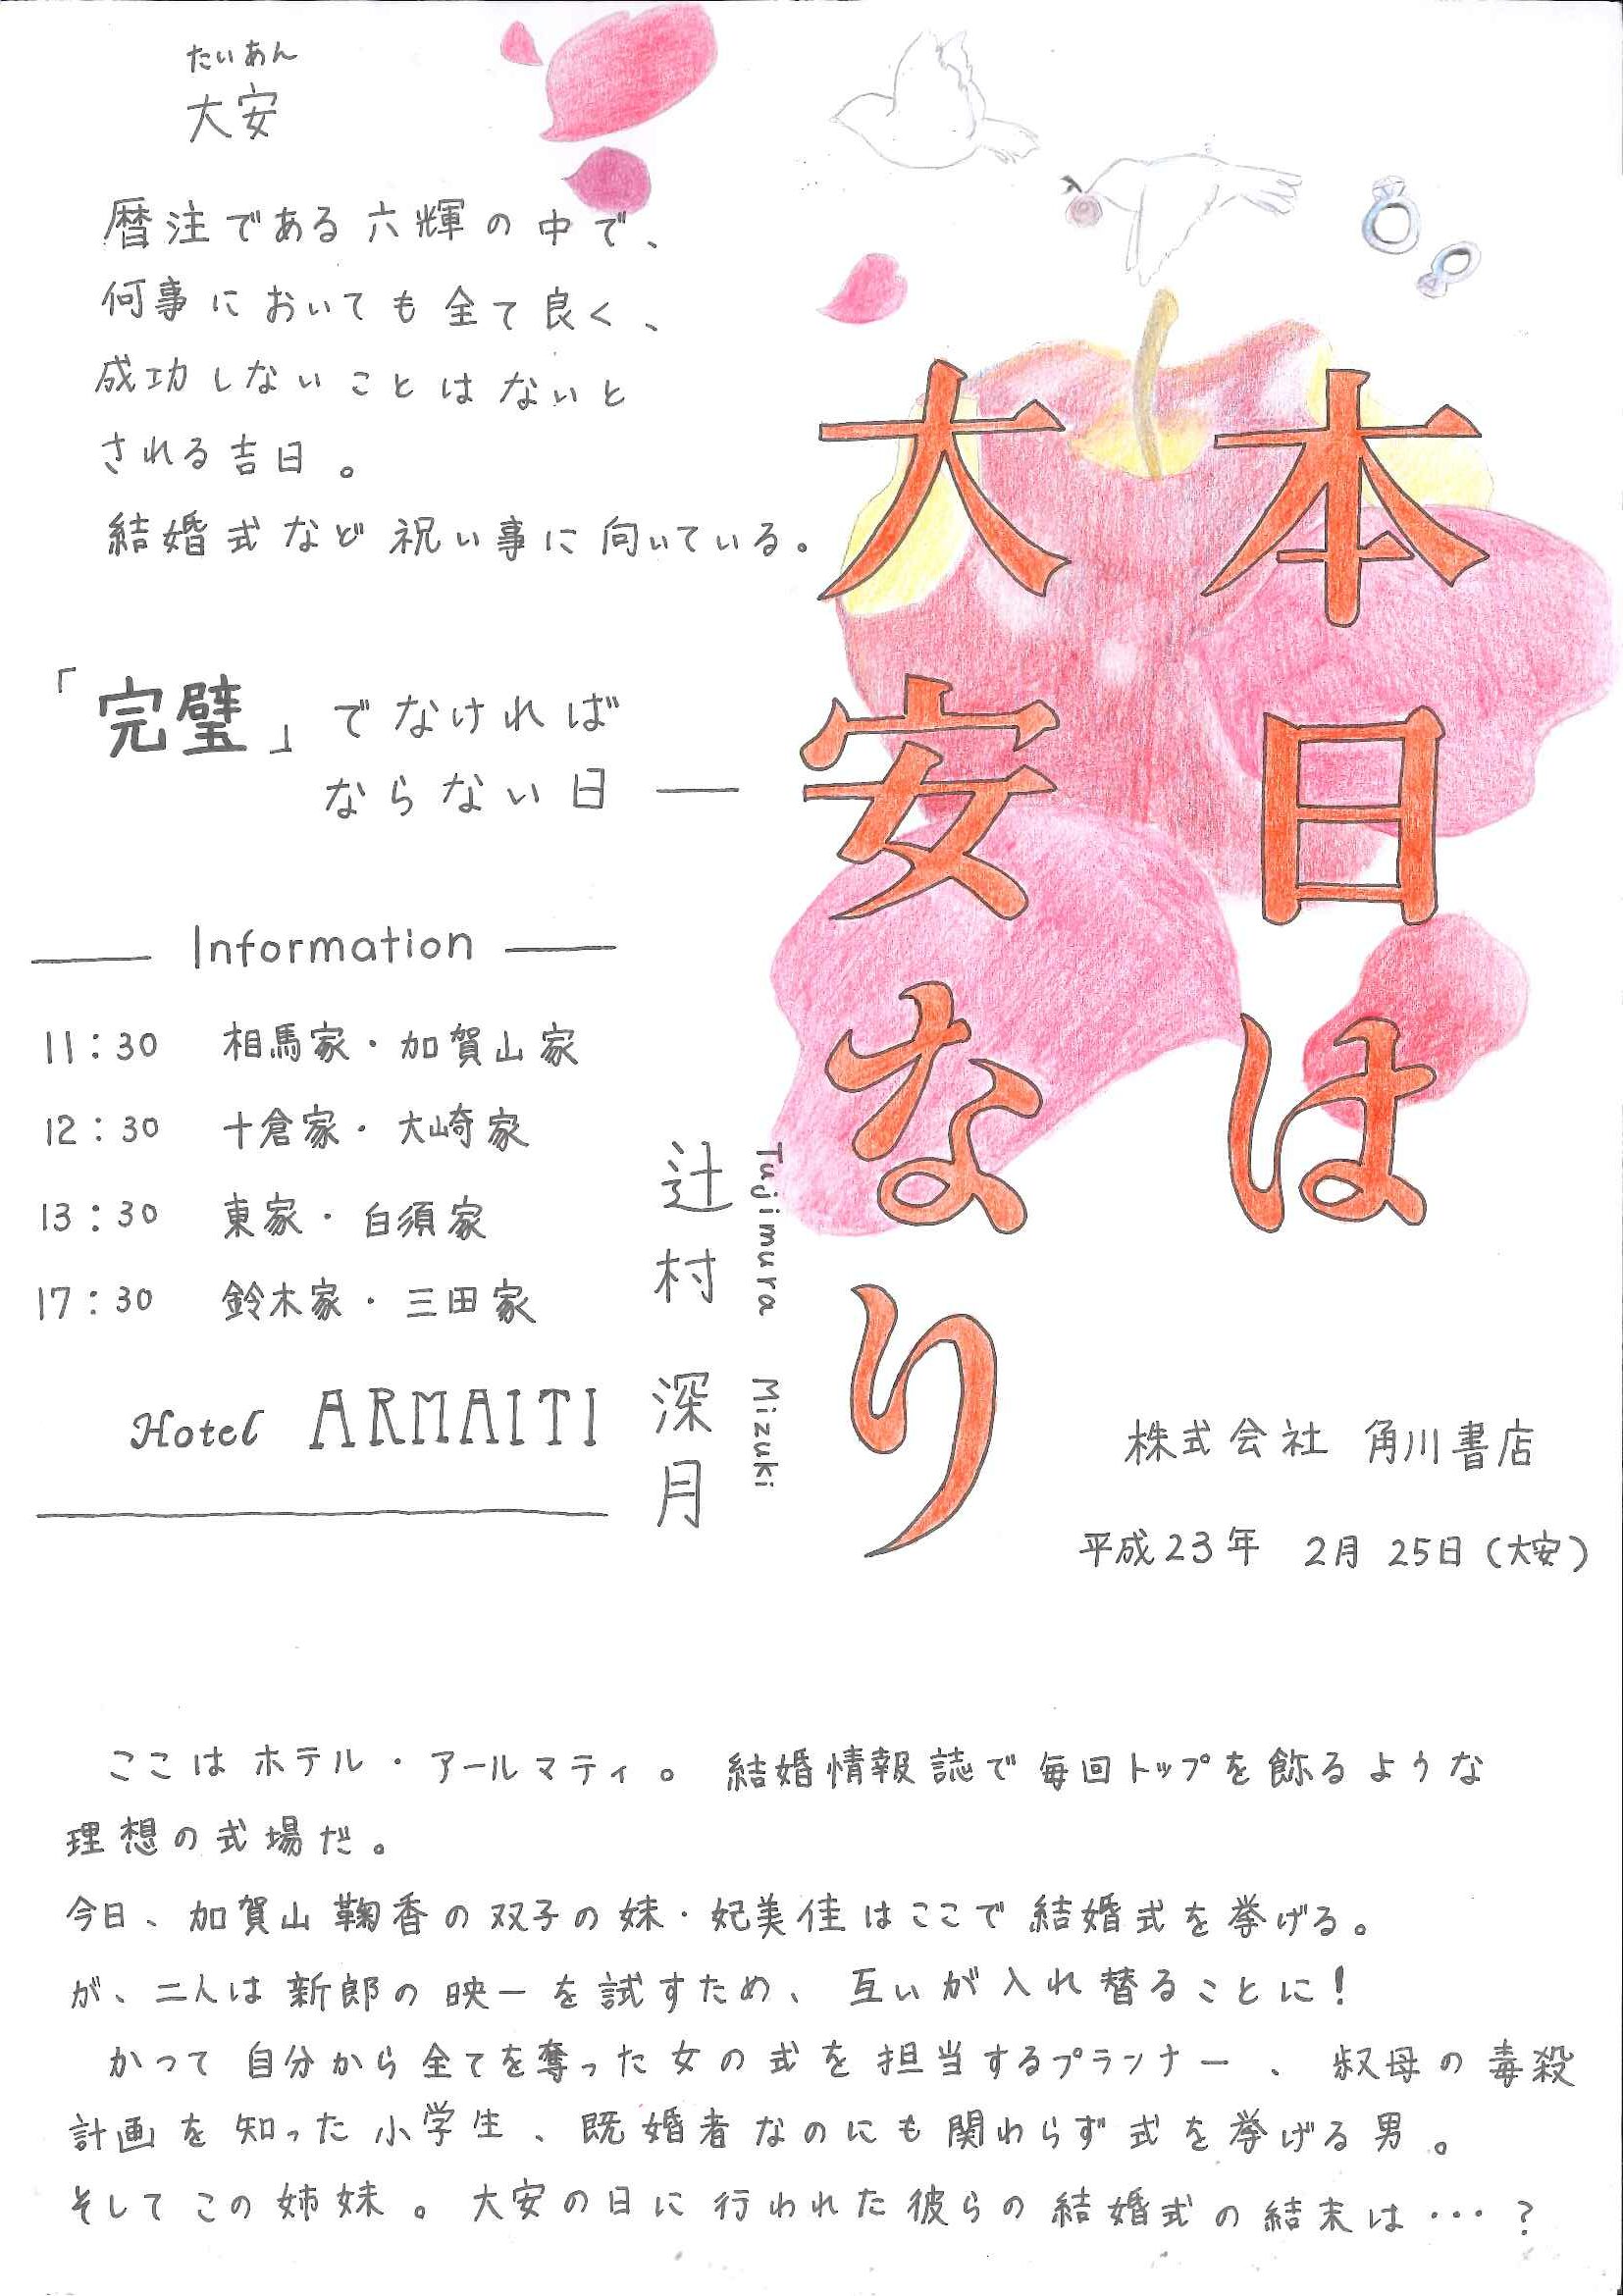 たいあん
大安
暦注である六輝の中で、
何事においても全て良く、
成功しないことはないと
される吉日。
結婚式など祝い事に向いている。
「完璧」でなければ
ならない日 ―
本日は
大安なり
Information
11:30 相馬家・加賀山家
12:30 十倉家・大崎家
13:30 東家・白須家
17:30 鈴木家・三田家
Hotel ARMAITI
辻村 深月
Tujimura Mizuki
株式会社 角川書店
平成23年 2月 25日(大安)
ここはホテル・アールマティ。結婚情報誌で毎回トップを飾るような
理想の式場だ。
今日、加賀山鞠香の双子の妹・妃美佳はここで結婚式を挙げる。
が、二人は新郎の映一を試すため、互いが入れ替ることに!
かつて自分から全てを奪った女の式を担当するプランナー、叔母の毒殺
計画を知った小学生、既婚者なのにも関わらず式を挙げる男。
そしてこの姉妹。大安の日に行われた彼らの結婚式の結末は…?